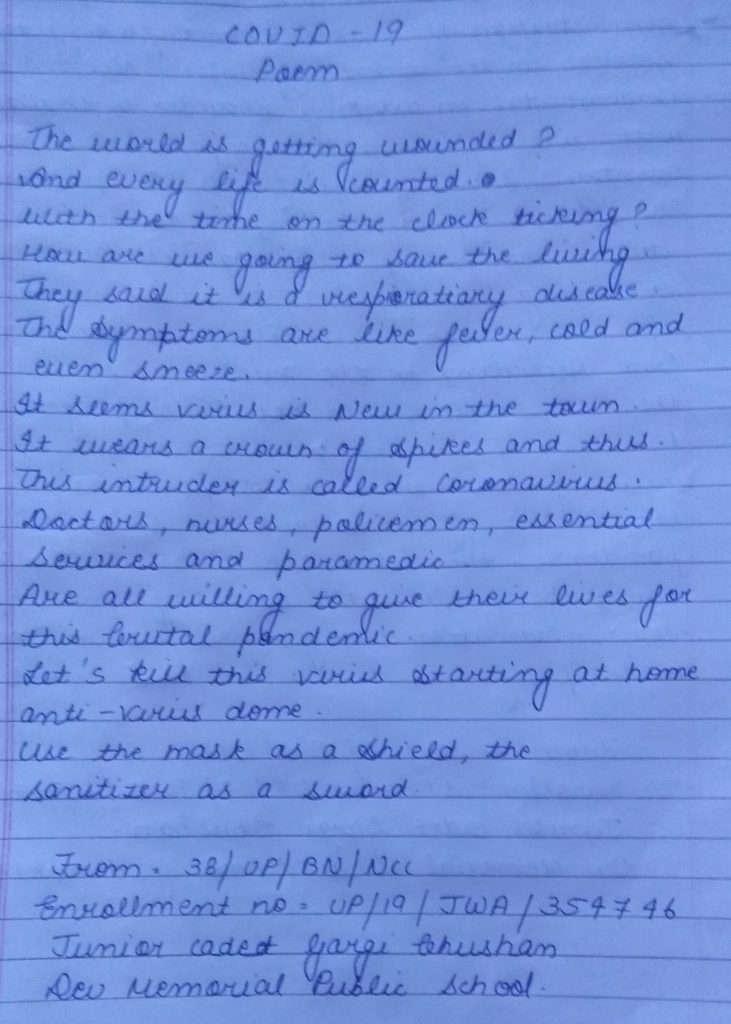 COVID - 19
Poem
The world is getting wounded ?
And every life is counted.
with the time on the clock ticking ?
How are we going to save the living.
They said it is a respiratiary disease
The symptoms are like fever, cold and
even sneeze.
It seems varius is New in the town.
It wears a crown of spikes and thus.
This intruder is called Coronavirus.
Doctors, nurses, policemen, essential
services and paramedic
Are all willing to give their lives for
this brutal pandemic.
Let's kill this varius starting at home
anti-varius dome.
Use the mask as a shield, the
sanitizer as a sword.
From. 38/UP/BN/NCC
Enrollment no = UP/19/JWA/354746
Junior cadet Gargi bhushan
Dev Memorial Public School.